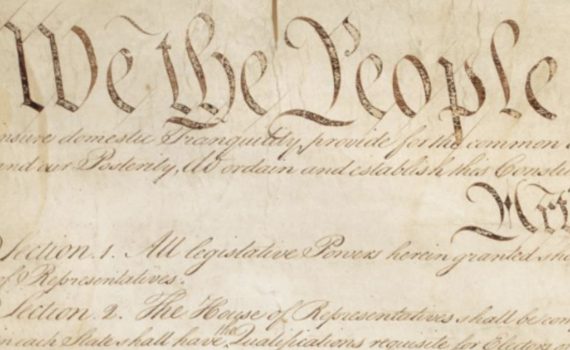 We the People
nsure domestic Tranquility, provide for the common
and our Posterity, do ordain and establish this Constitu
Art
Section. 1. All legislative Powers herein granted sha
of Representatives.
Section. 2. The House of Representatives shall be com
in each State shall have the Qualifications requisite for Electors o